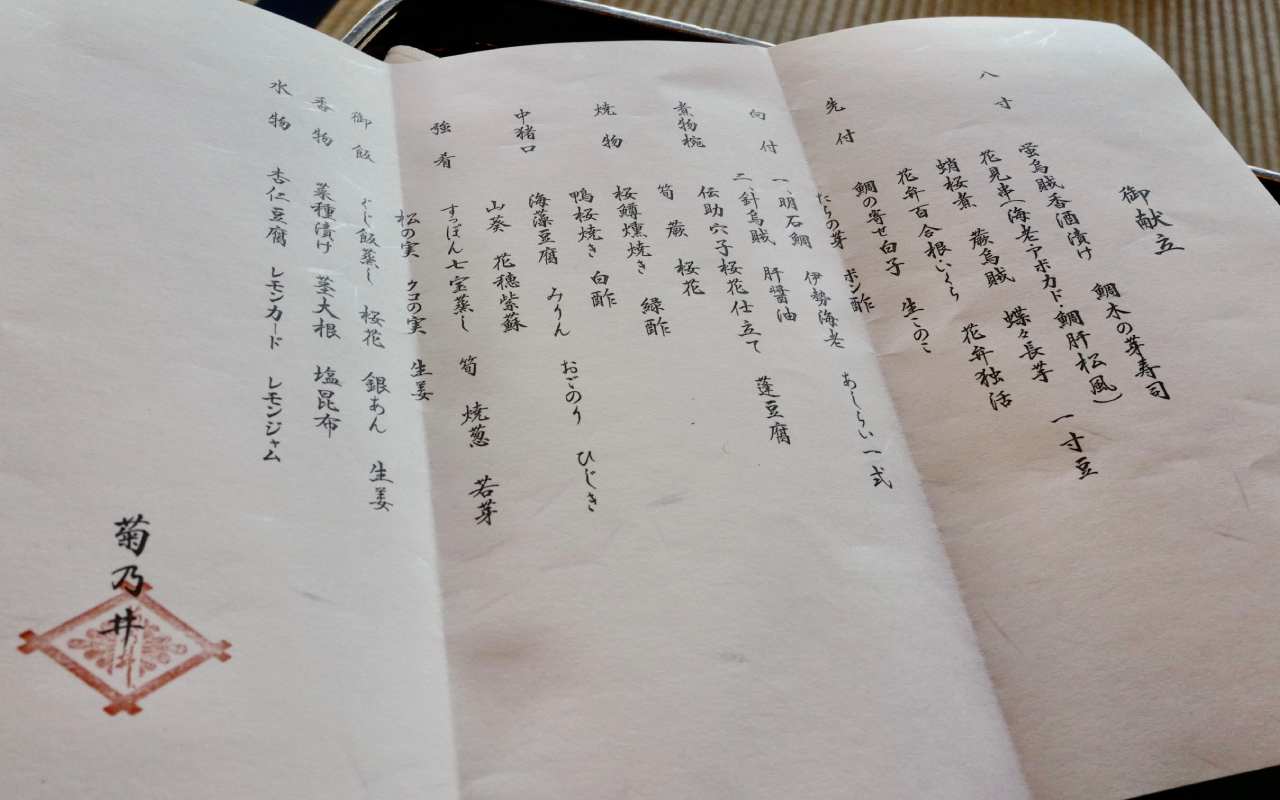 御献立
八寸 螢烏賊香酒漬け 鯛木の芽寿司
花見串(海老アボカド・鯛肝松風)
蛸桜煮 蕨烏賊 蝶々長芋 一寸豆
花弁百合根いくら 花弁独活
先付 鯛の寄せ白子 生このこ
たらの芽 ポン酢
向付 一、明石鯛 伊勢海老 あしらい一式
二、針烏賊 肝醤油
煮物椀 伝助穴子桜花仕立て 蓬豆腐
筍 蕨 桜花
焼物 桜鱒燻焼き 緑酢
鴨桜焼き 白酢
中猪口 海藻豆腐 おごのり ひじき
山葵 花穂紫蘇
強肴 すっぽん七宝蒸し 筍 焼葱 若芽
松の実 クコの実 生姜
御飯 ぐじ飯蒸し 桜花 銀あん 生姜
香物 菜種漬け 茎大根 塩昆布
水物 杏仁豆腐 レモンカード レモンジャム
菊乃井